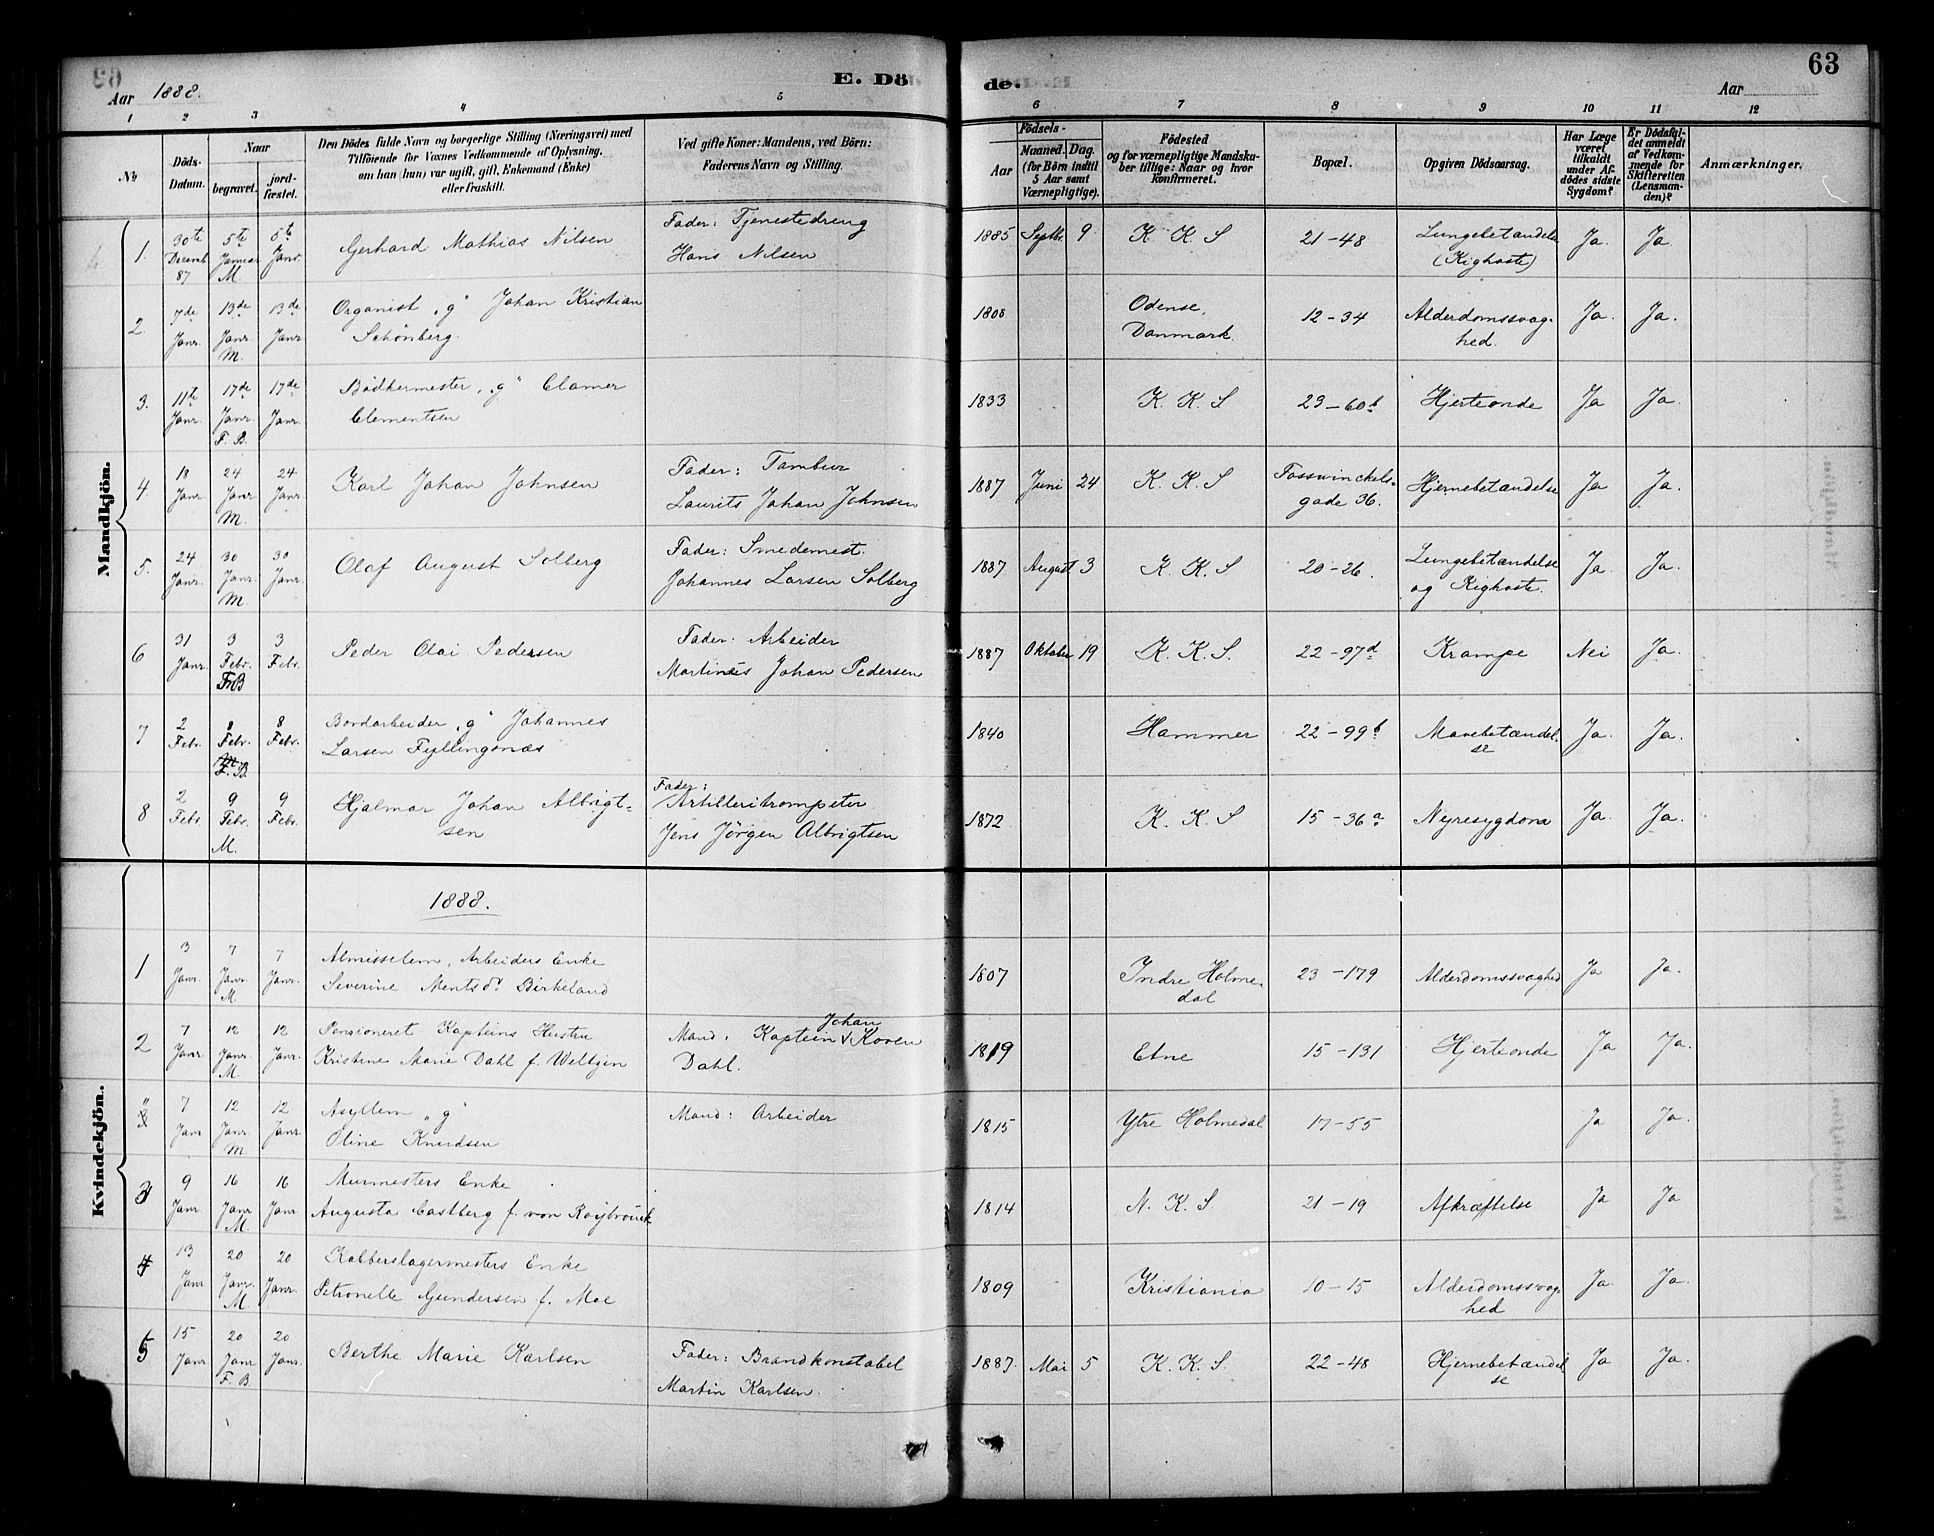 63
E. Döde.
Aar 1888.
Aar
1 2 3 4 5 6 7 8 9 10 11 12
No
Döds-Datum.
Naar
begravet.
jordfæstet.
Den Dödes fulde Navn og borgerlige Stilling (Næringsvei) med
Tilföiende for Voxnes Vedkommende af Oplysning,
om han (hun) var ugift, gift, Enkemand (Enke)
eller fraskilt.
Ved gifte Koner: Mandens, ved Börn:
Faderens Navn og Stilling.
Födsels-
Aar
Maaned. Dag.
(for Börn indtil
5 Aar samt
Værnepligtige).
Födested
og for værnepligtige Mandska-
ber tillige: Naar og hvor
konfirmeret.
Bopæl.
Opgiven Dödsaarsag.
Har Læge
været
tilkaldt
under Af-
dödes sidste
Sygdom?
Er Dödsfal-
det anmeldt
af Vedkom-
mende for
Skifteretten
(Lensman-
den)?
Anmærkninger.
Mandkjön.
1. 30te Decemb. 87 5te Januar M. 5te Janr. Gerhard Mathias Nilsen Fader: Tjenestedreng
Hans Nilsen 1885 Septbr. 9 K. K. S 21-48 Lungebetændelse
(Kighoste) Ja. Ja.
2. 7de Janr. 13de Janr. M. 13de Janr. Organist "g" Johan Kristian
Schönberg. 1808 Odense,
Danmark. 12-34 Alderdomssvag-
hed. Ja. Ja.
3. 11te Janr. 17de Janr. F. B. 17de Janr. Bödkermester "g" Clamer
Clementsen 1833 K. K. S 23-60b Hjerteonde Ja Ja.
4. 18 Janr. 24 Janr M. 24 Janr. Karl Johan Johnsen Fader: Tambur
Laurits Johan Johnsen 1887 Juni 24 K. K. S Fosswinckels-
gade 36. Hjernebetændelse Ja Ja.
5. 24 Janr. 30 Janr. M 30 Janr. Olaf August Solberg Fader: Smedemest.
Johannes Larsen Solberg 1887 August 3 K. K. S 20-26. Lungebetændelse
og Kighoste. Ja. Ja.
6 31 Janr. 3 Febr. F. B 3 Febr. Peder Olai Pedersen Fader: Arbeider
Martinus Johan Pedersen 1887 Oktober 19 K. K. S. 22-97d Krampe Nei Ja.
7 2 Febr. 8 Febr. F. B. 8 Febr. Bordarbeider "g" Johannes
Larsen Fyllingsnæs 1840 Hammer 22-99b Mavebetændel-
se Ja. Ja.
8 2 Febr. 9 Febr. M. 9 Febr. Hjalmar Johan Albrigt-
sen Fader:
Artilleritrompeter
Jens Jörgen Albrigtsen 1872 K. K. S 15-36a Nyresygdom Ja. Ja.
Kvindekjön.
1888.
1 3 Janr. 7 Janr. M. 7 Janr. Almisselem, Arbeiders Enke
Severine Mentsdr. Birkeland 1807 Indre Holme-
dal 23-179 Alderdomssvaghed Ja Ja.
2 7 Janr. 12 Janr. M. 12 Janr. Pensioneret Kapteins Hustru
Kristine Marie Dahl f. Weltzin Mand: Kaptein Johan Koren
Dahl. 1819 Etne 15-131 Hjerteonde Ja Ja.
" 7 Janr 12 Janr. M. 12 Janr. Asyllem "g"
Oline Knudsen Mand: Arbeider 1815 Ytre Holmedal 17-55 Ja Ja.
3 9 Janr. 16 Janr M. 16 Janr Murmesters Enke
Augusta Castberg f. von 1814 N. K. S 21-19 Afkræftelse Ja Ja
4 13 Janr 20 Janr. M. 20 Janr. Kobberslagermesters Enke
Petronelle Gundersen f. Moe 1809 Kristiania 10-15 Alderdomssvag-
hed Ja. Ja.
5 15 Janr 20 Janr F. B. 20 Janr. Berthe Marie Karlsen Fader: Brandkonstabel
Martin Karlsen. 1887. Mai 5 K. K. S. 22-48 Hjernebetændel
se Ja Ja.